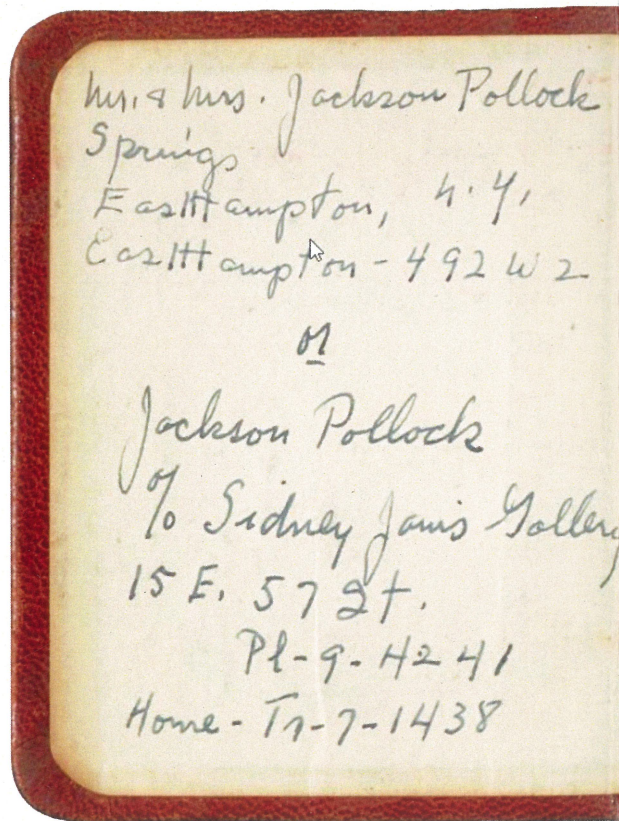 Mr. & Mrs. Jackson Pollock
Springs
EastHampton, N.Y.
EastHampton - 492 W 2
or
Jackson Pollock
c/o Sidney Janis Gallery
15 E. 57 St.
Pl-9-4241
Home - Tr-7-1438